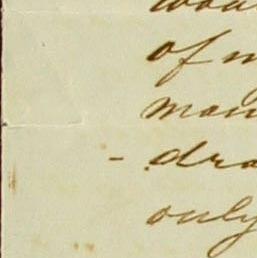 of m
man
- dra
only